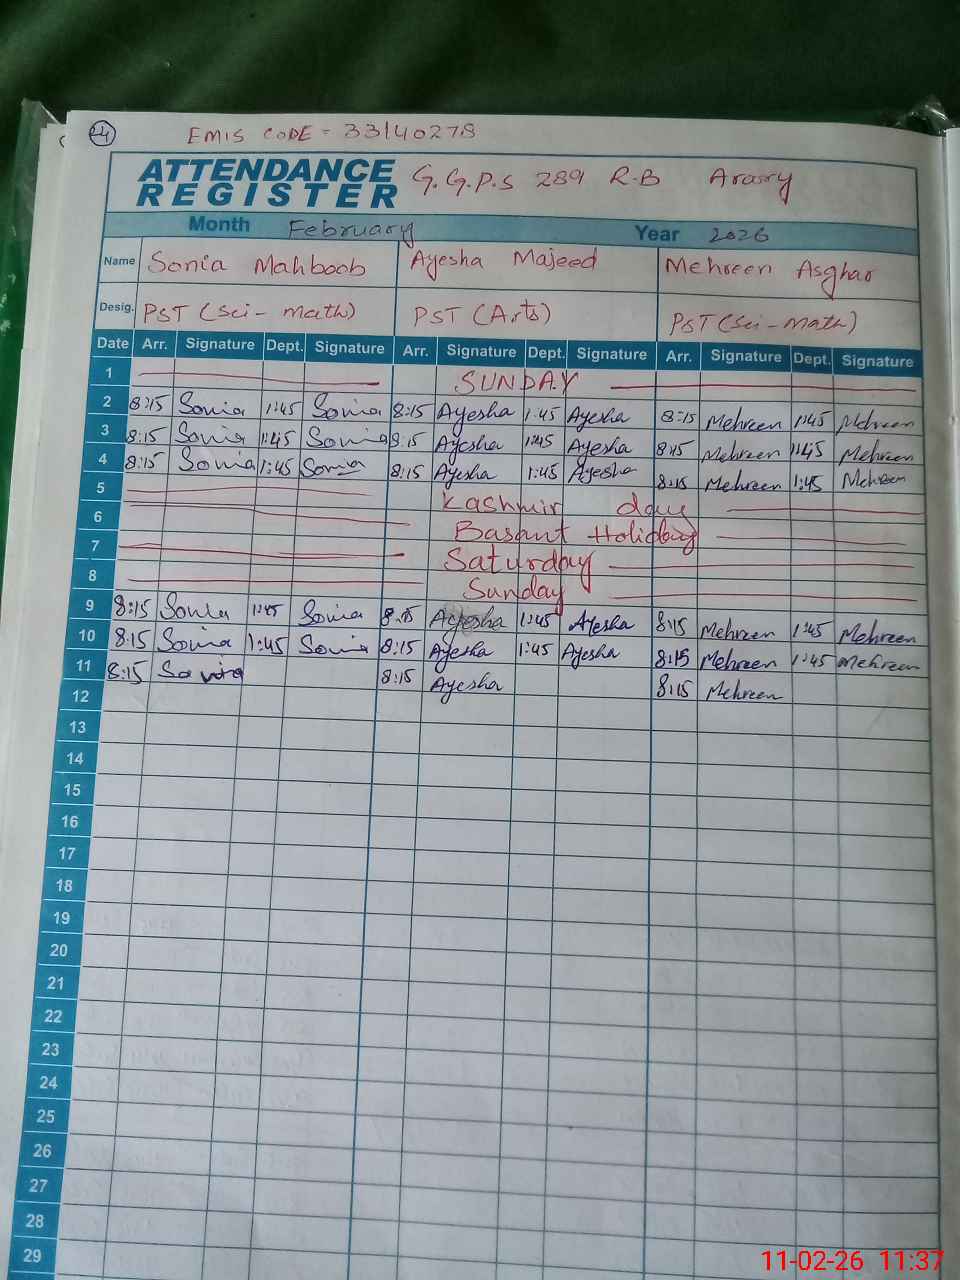 24
EMIS CODE = 33140278
ATTENDANCE REGISTER G.G.P.S 289 R.B Arary
Month February Year 2026
Name Sonia Mahboob Ayesha Majeed Mehreen Asghar
Desig. PST (Sci - math) PST (Arts) PST (Sci - Math)
Date Arr. Signature Dept. Signature Arr. Signature Dept. Signature Arr. Signature Dept. Signature
1 SUNDAY
2 8:15 Sonia 1:45 Sonia 8:15 Ayesha 1:45 Ayesha 8:15 Mehreen 1:45 Mehreen
3 8:15 Sonia 1:45 Sonia 8:15 Ayesha 1:45 Ayesha 8:15 Mehreen 1:45 Mehreen
4 8:15 Sonia 1:45 Sonia 8:15 Ayesha 1:45 Ayesha 8:15 Mehreen 1:45 Mehreen
5 Kashmir day
6 Basant Holiday
7 Saturday
8 Sunday
9 8:15 Sonia 1:45 Sonia 8:15 Ayesha 1:45 Ayesha 8:15 Mehreen 1:45 Mehreen
10 8:15 Sonia 1:45 Sonia 8:15 Ayesha 1:45 Ayesha 8:15 Mehreen 1:45 Mehreen
11 8:15 Sonia 8:15 Ayesha 8:15 Mehreen
12
13
14
15
16
17
18
19
20
21
22
23
24
25
26
27
28
29
11-02-26 11:37